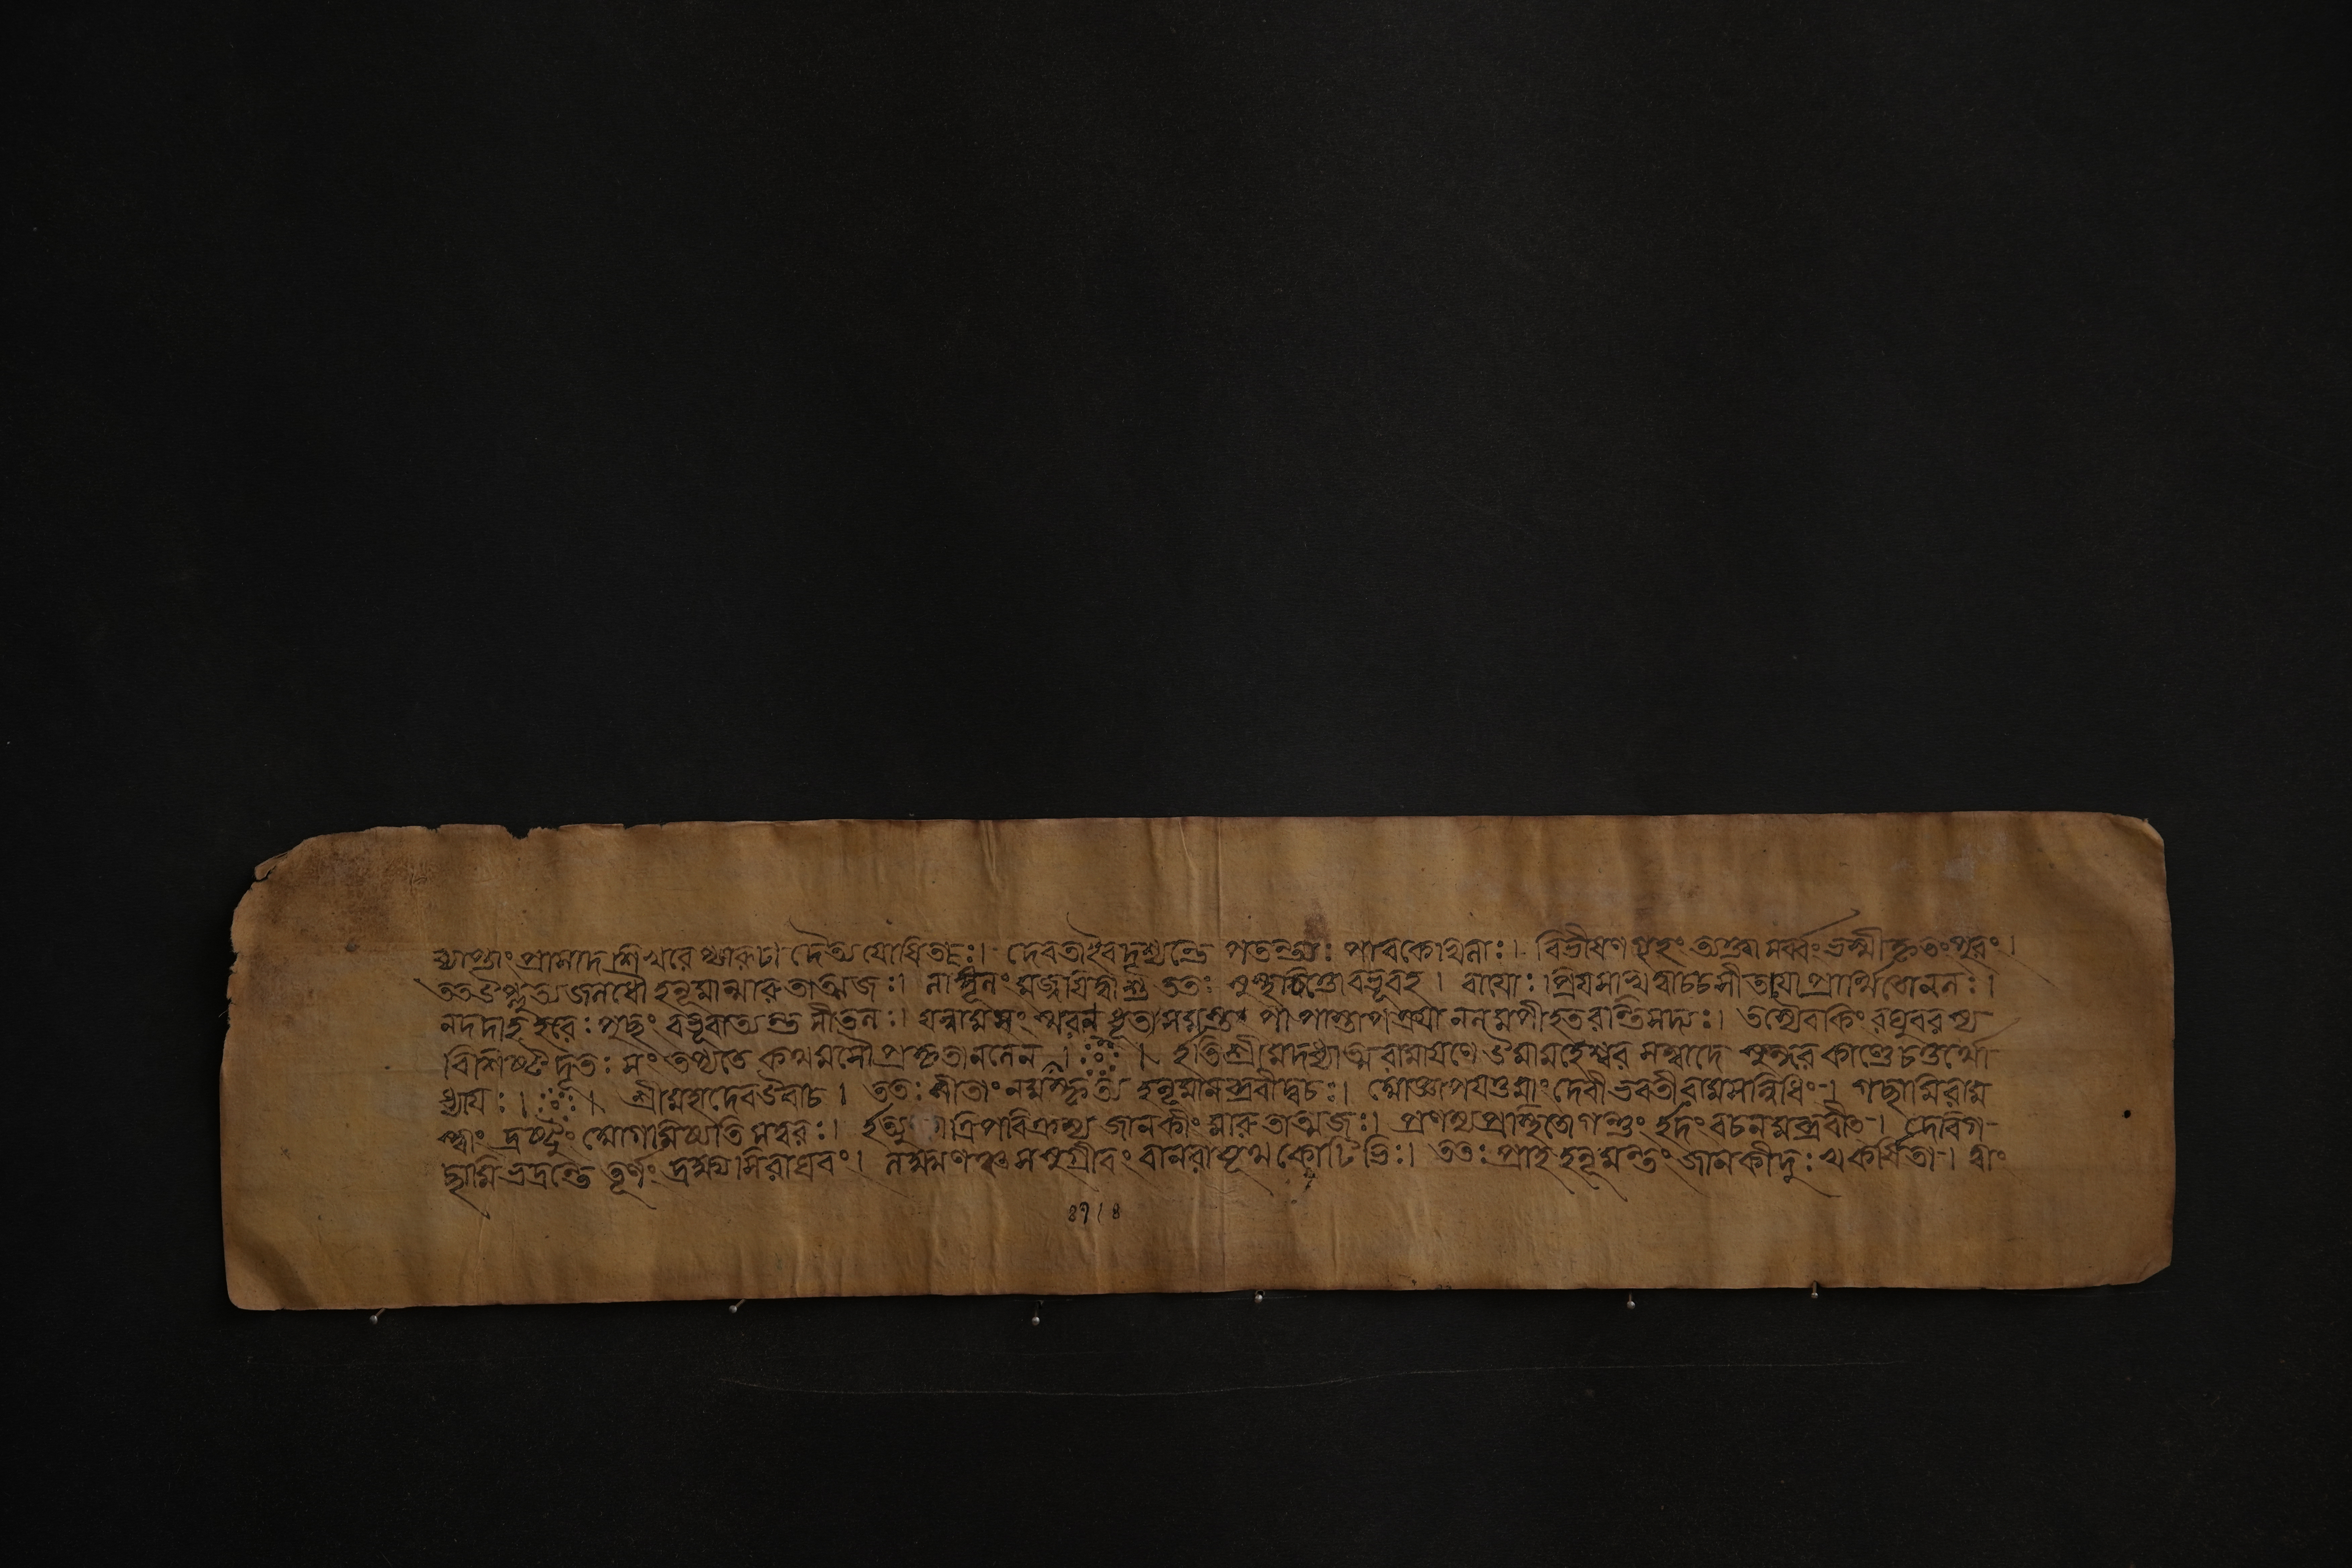 ব্যাপ্তাং প্রাসাদশিখরেপ্যারূঢ়া দৈত্যযোষিতঃ। দেবতাইবদৃশ্যন্তে পতন্ত্যঃ পাবকেখিলাঃ। বিভীষণগৃহং ত্যক্ত্বা সর্ব্বং ভস্মীকৃতংপুরং।
ততউৎপ্লুত্যজলধৌ হনূমান্মারুতাত্মজঃ। লাঙ্গূলং মজ্জয়িত্বান্তু ততঃ সুস্থচিত্তোবভূবহ। বায়োঃ প্রিয়সখিত্বাচ্চসীতয়াপ্রার্থিতোনলঃ।
নদদাহহরেঃপুচ্ছং বভূবাত্যন্তশীতলঃ। যন্নামসংস্মরণধূতসমস্তপাপাস্তাপত্রয়ানলমপীহতরন্তিসদ্যঃ। তস্যৈবকিং রঘুবরস্য
বিশিষ্টদূতঃ সংতপ্যতে কথমসৌপ্রাকৃতানলেন। ইতিশ্রীমদধ্যাত্মরামায়ণে উমামহেশ্বরসম্বাদে সুন্দরকাণ্ডে চতুর্থো
ধ্যায়ঃ। শ্রীমহাদেবউবাচ। ততঃ সীতাং নমস্কৃত্য হনূমানব্রবীদ্বচঃ। আজ্ঞাপয়তুমাং দেবীভবতীরামসন্নিধিং। গচ্ছামিরাম
স্ত্বাং দ্রষ্টুং আগমিষ্যতিসত্বরঃ। ইত্যু ত্রিপরিক্রম্য জানকীং মারুতাত্মজঃ। প্রণম্যপ্রস্থিতোগন্তুং ইদংবচনমব্রবীৎ। দেবিগ
চ্ছামিভদ্রন্তে তূর্ণং দ্রক্ষ্যসিরাঘবং। লক্ষ্মণঞ্চসসুগ্রীবং বানরাযূথকোটিভিঃ। ততঃ প্রাহহনূমন্তং জানকীদুঃখকর্ষিতা। ত্বাং
৪৭।৪